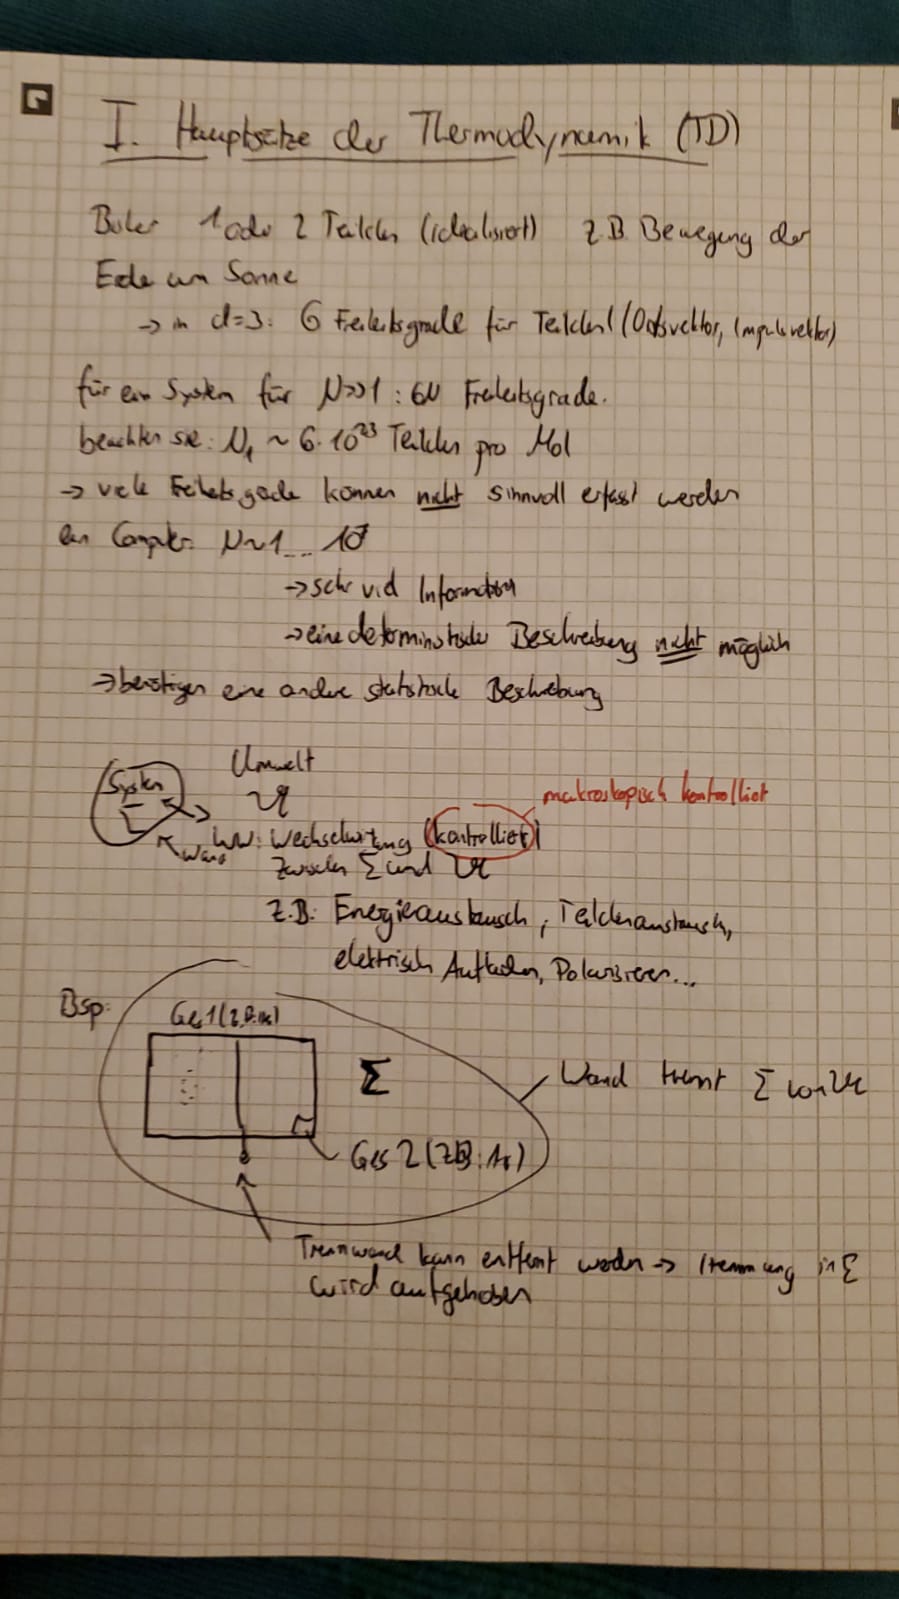 I. Hauptsätze der Thermodynamik (TD)
Bisher 1 oder 2 Teilchen (idealisiert) z.B. Bewegung der
Erde um Sonne
→ in d=3: 6 Freiheitsgrade für Teilchen (Ortsvektor, Impulsvektor)
für ein System für N>>1 : 6N Freiheitsgrade.
beachten sie: N ~ 6·10²³ Teilchen pro Mol
→ viele Freiheitsgrade können nicht sinnvoll erfasst werden
ein Computer: N~1 ...
→ sehr viel Information
→ eine deterministische Beschreibung nicht möglich
→ benötigen eine andere statistische Beschreibung
Umwelt
System
makroskopisch kontrolliert
Σ
Wand
WW: Wechselwirkung (kontrolliert)
zwischen Σ und
z.B. Energieaustausch, Teilchenaustausch,
elektrisch Aufladen, Polarisieren...
Bsp:
Gas 1 (z.B.
Σ
Wand trennt Σ von
Gas 2 (z.B.
Trennwand kann entfernt werden → Trennung in Σ
wird aufgehoben